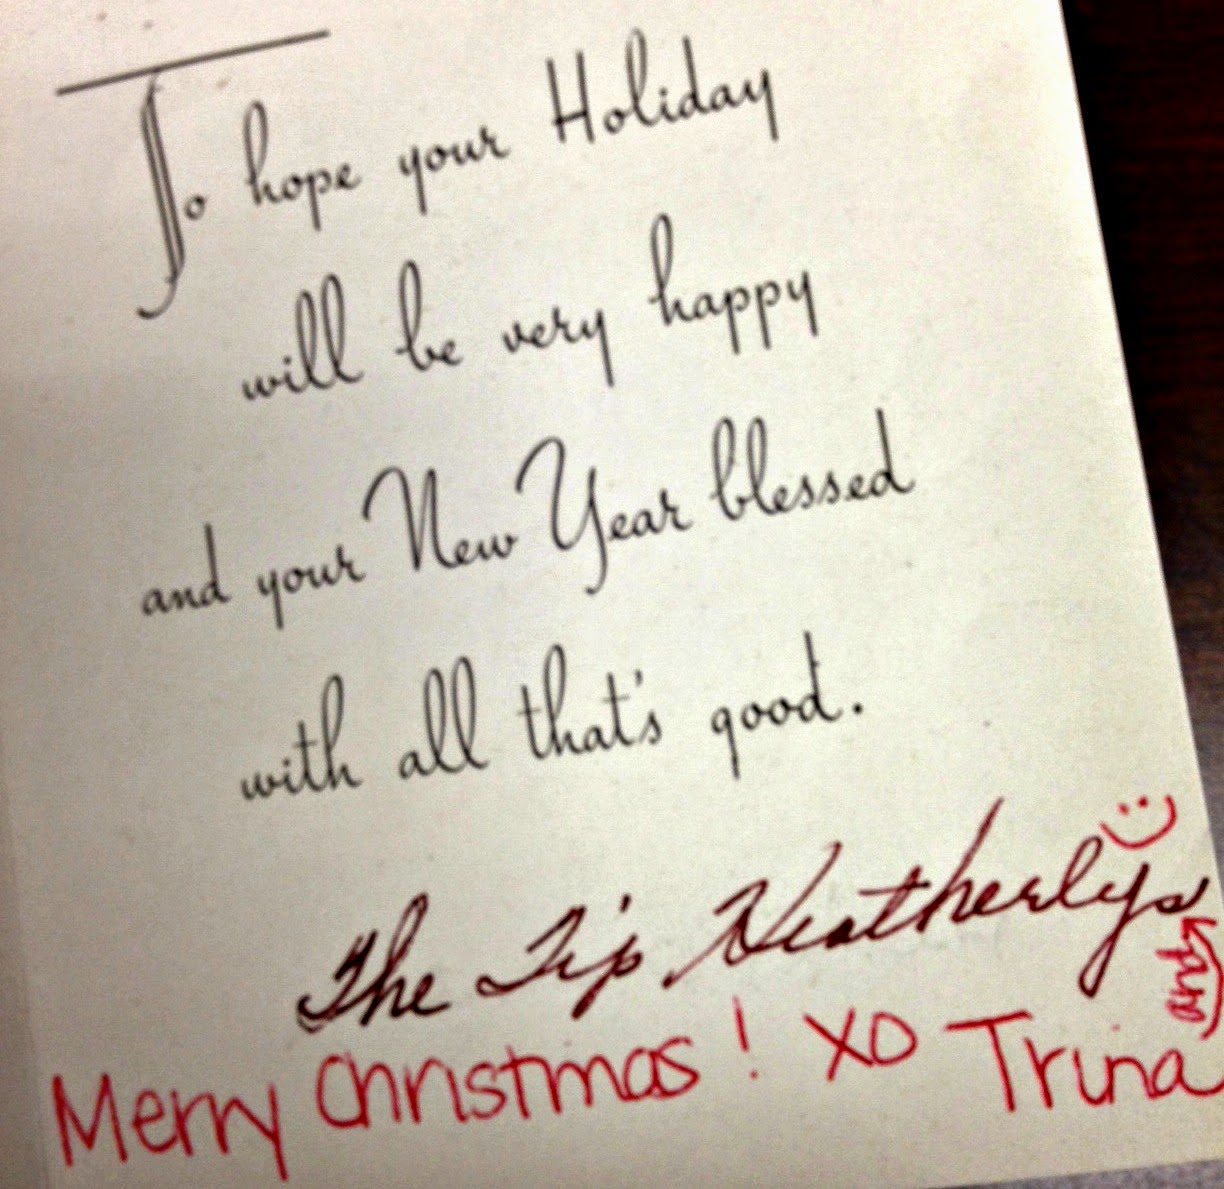 To hope your Holiday
will be very happy
and your New Year blessed
with all that's good.
The Tip Weatherlys
Merry Christmas! XO Trina